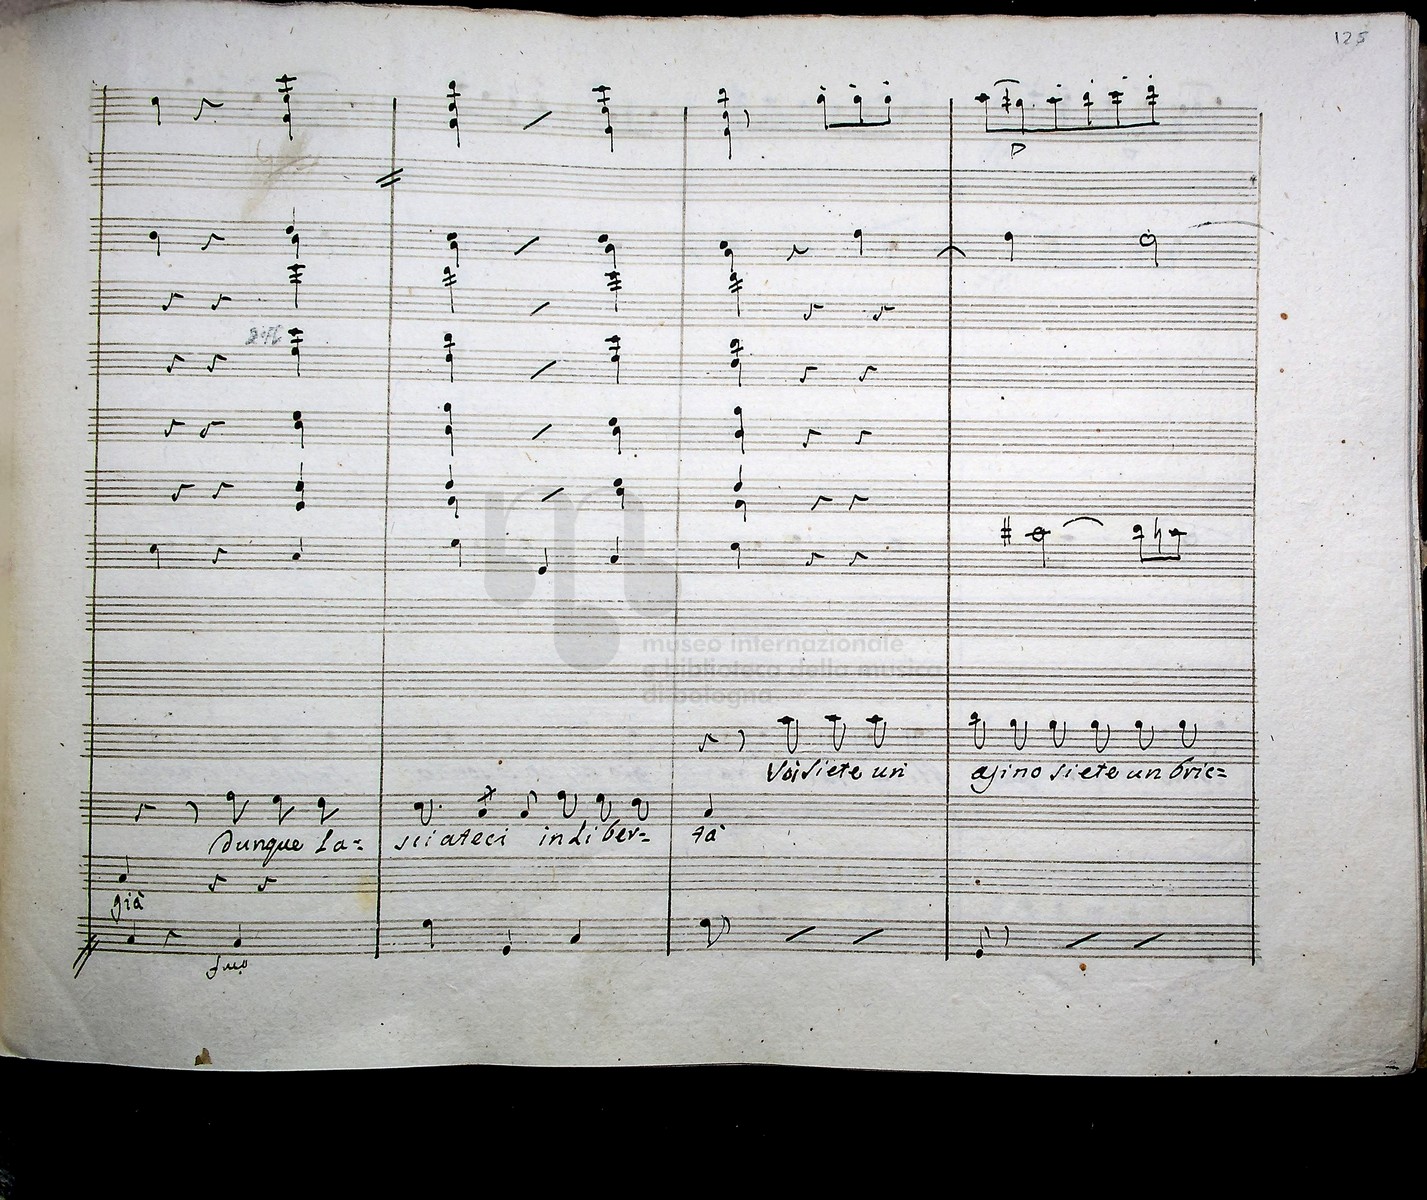 125
P
museo internazionale
e biblioteca della musica
di bologna
Voi siete un asino siete un bric=
Dunque La= sciateci in Liber= tà
già